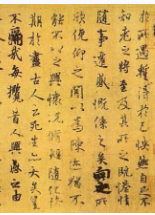 於所遇蹔得於己怏然自足不
知老之將至及其所之既惓情
隨事遷感慨係之矣向之所
欣俛仰之閒以為陳迹猶不
能不以之興懷況脩短隨化終
期於盡古人云死生亦大矣豈
不痛哉每攬昔人興感之由